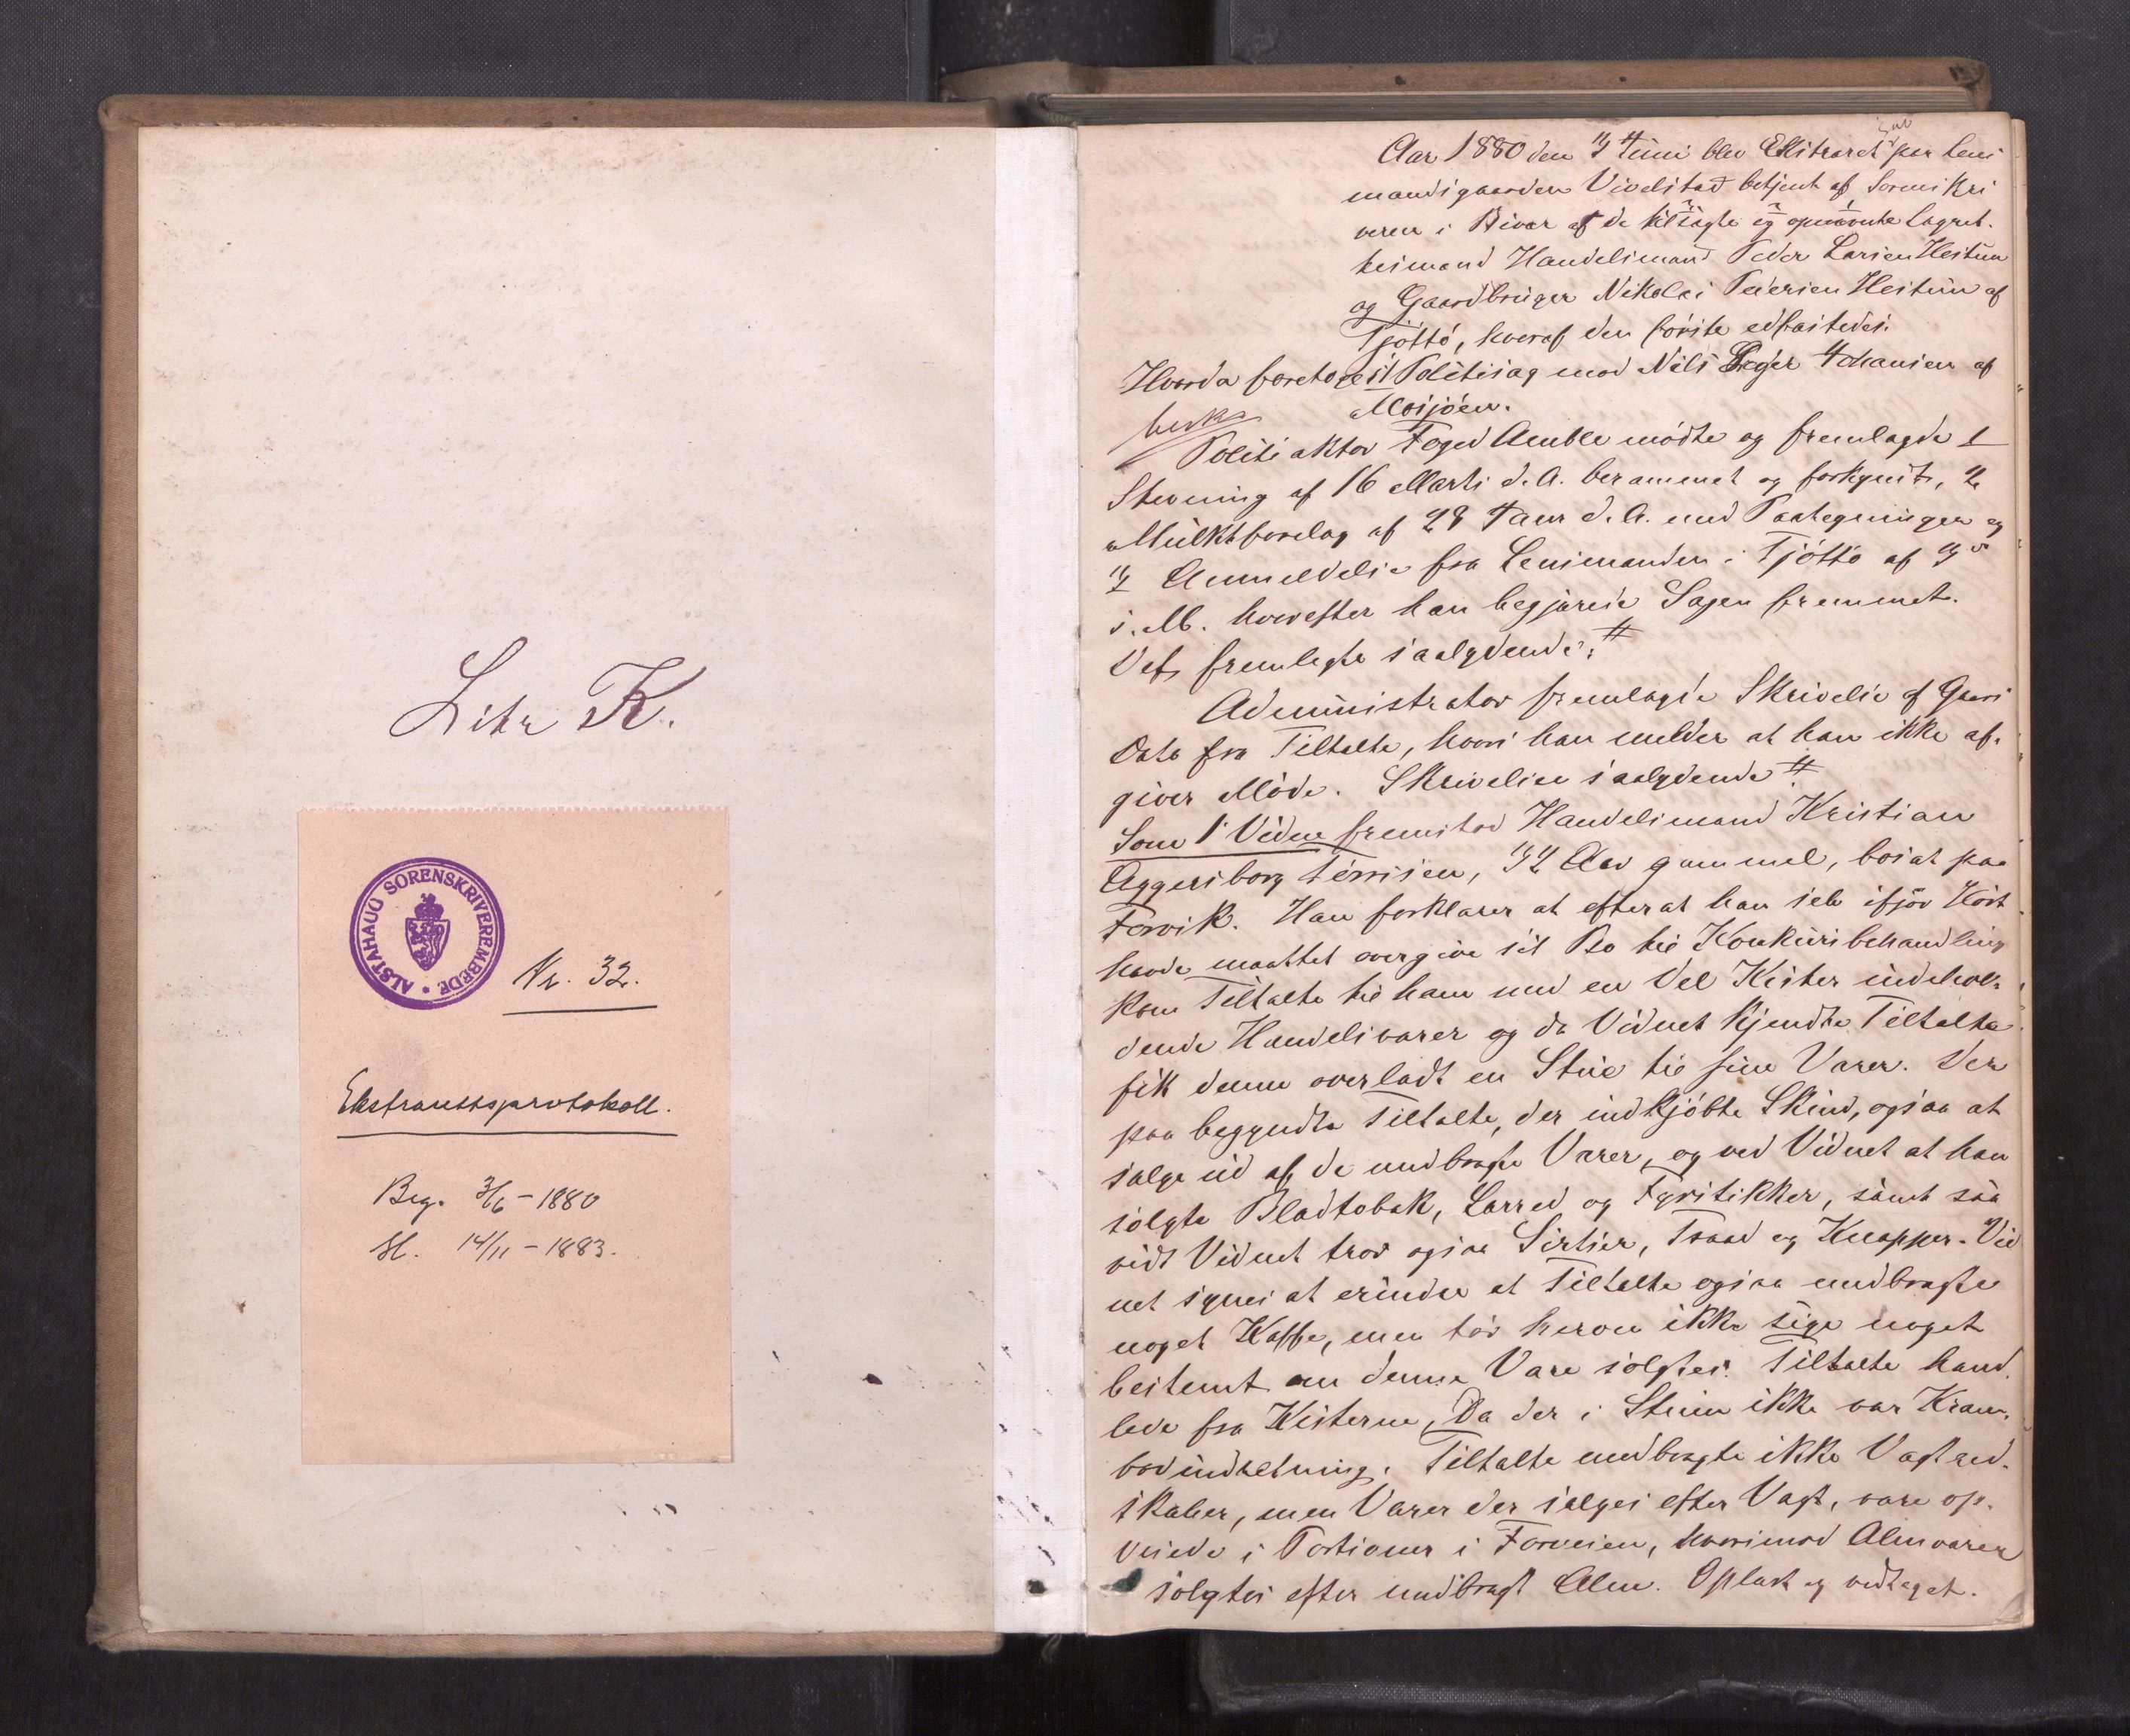 Litr K.
ALSTAHAUG SORENSKRIVEREMBEDE
Nr. 32.
Ekstrarettsprotokoll.
Beg. 3/6 - 1880
Sl. 14/11 - 1883.
Aar 1880 den 3 Juni blev Ekstraret sat paa Lens
mandsgaarden Vivelstad betjent af Sorenskri
veren i Bivær af de tilsagte og opnævnte Lagret-
tesmænd Handelsmand Peder Larsen Hestun
og Gaardbruger Nikolai Pedersen Hestun af
Tjøttø, hvoraf den første edfæstedes.
Hvorda foretoges 1 Politisag mod Nils Johansen af
Mosjøen.
Politiaktor Foged Amble mødte og fremlagde 1
Stevning af 16 Marts d.A. berammet og forkyndt, 2
Mulktforelag af 28 Janr d.A. med Paategninger og
3 Anmeldelse fra Lensmanden i Tjøttø af
d. M. hvorefter han begjærede Sagen fremmet.
Det fremlagte saalydende: #
Administrator fremlagde Skrivelse af Gaars
Dato fra Tiltalte, hvori han melder at han ikke af-
giver Møde. Skrivelsen saalydende #
Som 1' Vidne fremstod Handelsmand Kristian
Aggersborg, 32 Aar gammel, bosat paa
Forvik. Han forklarer at efterat han selv ifjor Høst
havde maattet overgive sit Bo til Konkursbehandling
kom Tiltalte til ham med en Del Kister indehol-
dende Handelsvarer og da Vidnet kjendte Tiltalte
fik denne overladt en Stue til sine Varer. Der
paa begyndte Tiltalte, der indkjøbte Skind, ogsaa at
sælge ud af de medbragte Varer, og ved Vidnet at han
solgte Bladtobak, Lærred og Fyrstikker, samt saa
vidt Vidnet tror ogsaa Sirtser, Traad og Knapper. Vid
net synes at erindre at Tiltalte ogsaa medbragte
noget Kaffe, men tør herom ikke sige noget
bestemt om denne Vare solgtes. Tiltalte hand
lede fra Kisterne, Da der i Stuen ikke var Kram-
bodindretning. Tiltalte medbragte ikke Vægtred-
skaber, men Varer der sælges efter Vægt, vare op-
veiede i Portioner i Forveien, hvorimod Alenvarer
solgtes efter medbragt Alen. Oplæst og vedtaget.